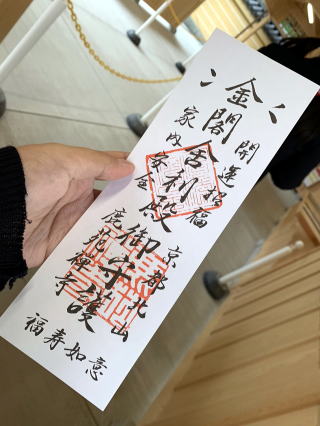 開運招福
金閣舎利殿御守護
家内安全
京都北山
鹿苑禅寺
福寿如意